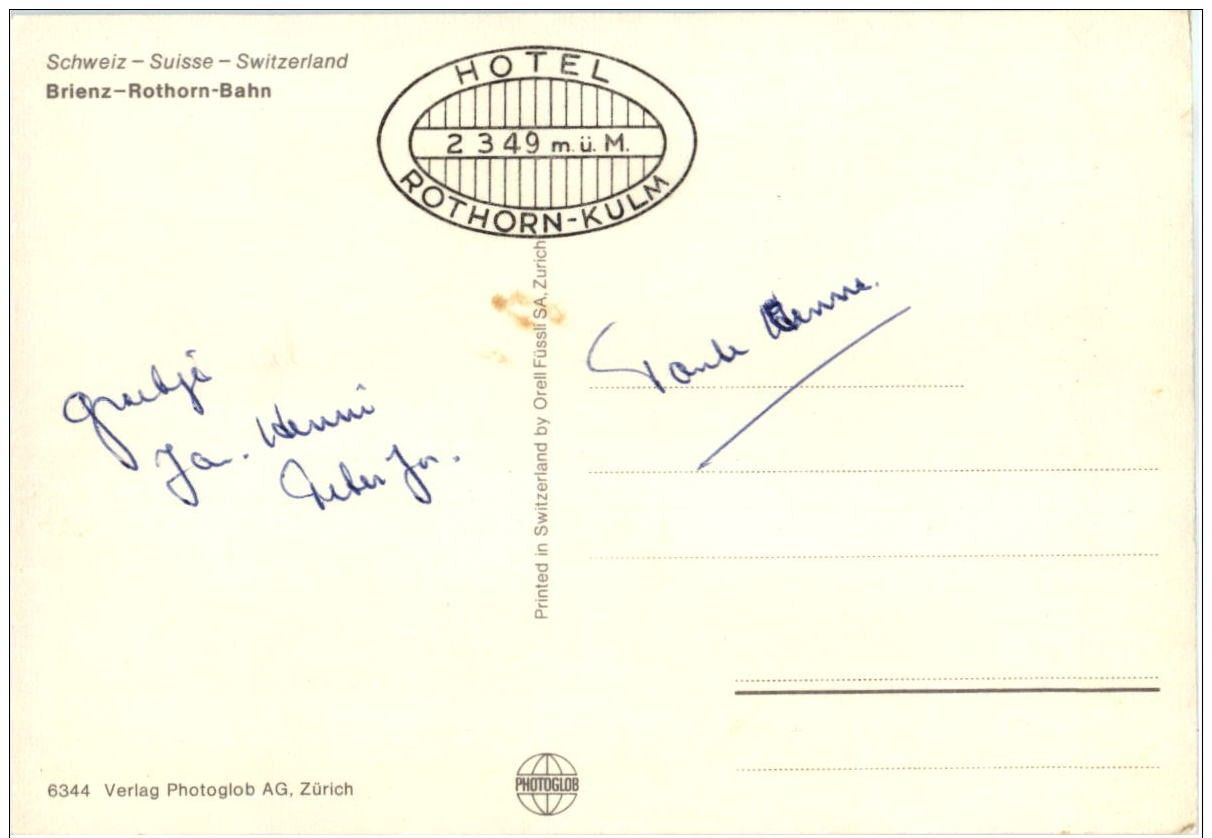 Schweiz – Suisse – Switzerland
Brienz–Rothorn-Bahn
HOTEL
2349 m.ü.M.
ROTHORN-KULM
Printed in Switzerland by Orell Füssli SA, Zürich
Tante Henne.
Ja. Henni
6344 Verlag Photoglob AG, Zürich
PHOTOGLOB